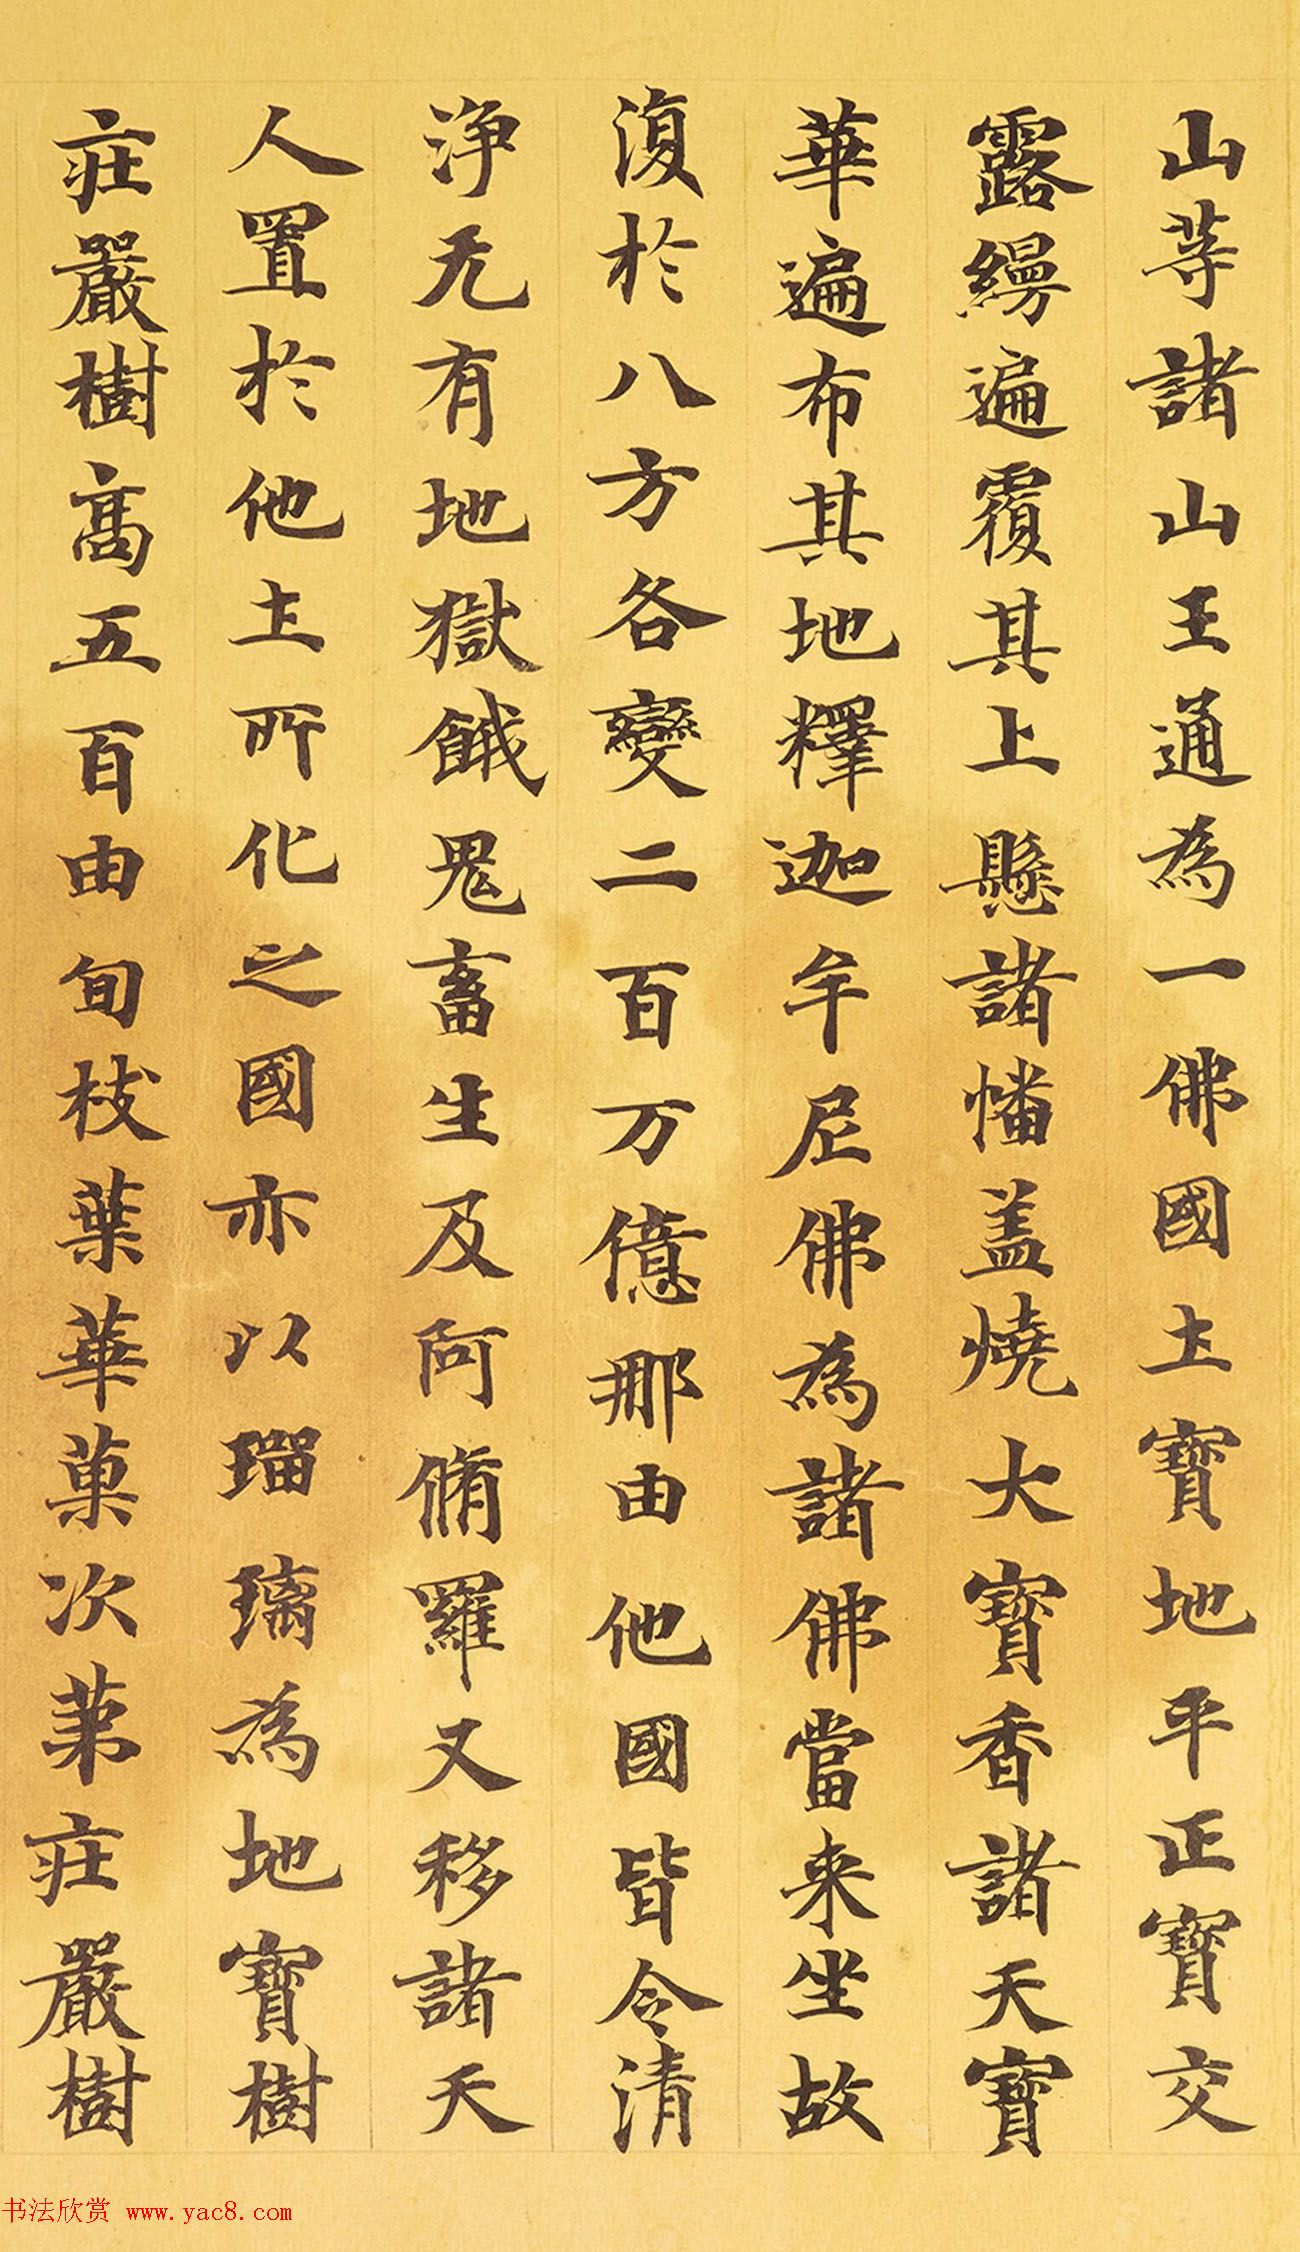 山等諸山王通為一佛國土寶地平正寶交
露縵遍覆其上懸諸幡盖燒大寶香諸天寶
華遍布其地釋迦牟尼佛為諸佛當来坐故
復於八方各變二百万億那由他國皆令清
淨无有地獄餓鬼畜生及阿脩羅又移諸天
人置於他土所化之國亦以瑠璃為地寶樹
莊嚴樹高五百由旬枝葉華菓次苐莊嚴樹
书法欣赏 www.yac8.com